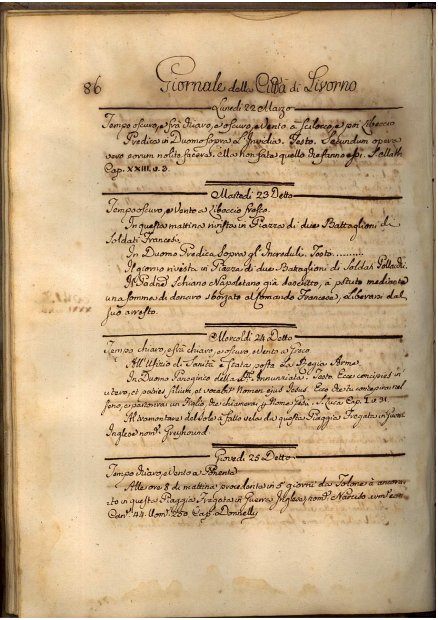 86
Giornale della Città di Livorno
Lunedì 22 Marzo
Tempo oscuro, e frà chiaro, e oscuro, e Vento a Scilocco, e poi Libeccio
Predica in Duomo sopra l'Invidia. Testo. Secundum opera
vero eorum nolite facere. Ma non fate quello che fanno essi. S. Matth.
Cap. XXIII. v. 3.
Martedì 23 Detto
Tempo oscuro, e Vento a Libeccio fresco.
In questa mattina rivista in Piazza di due Battaglioni di
Soldati Francesi.
In Duomo Predica Sopra gl'Increduli. Testo.........
Il giorno rivista in Piazza di due Battaglioni di Soldati Pollacchi.
Il Padne Schiano Napoletano già detenuto, à potuto mediante
una somma di denaro sborsato al Comando Francese, liberarsi dal
suo arresto.
Mercoldì 24 Detto
Tempo chiaro, e frà chiaro, e oscuro, e Vento a Greco
All'Ufizio di Sanità è stata posta la Regia Arme.
In Duomo Panegirico della SS. Annunziata. Testo Ecce concipies in
utero, et paries filium et vocabis Nomen ejus Jesus. Ecco che tu conceperai nel
seno, e partorirai un Figlio, che chiamerai per Nome Gesù. S. Luca Cap. I. v. 31.
Al tramontare del Sole à fatto vela da questa Piaggia Fregata in Guerra
Inglese nom. Greyhound.
Giovedì 25 Detto
Tempo chiaro, e Vento a Ponente
Alle ore 8 di mattina procedente in 5 giorni da Tolone à ancora-
to in questa Piaggia Fregata in Guerra Inglese nom. Narciso con
Can. 44. Uom. 250 Cap. Donnelly